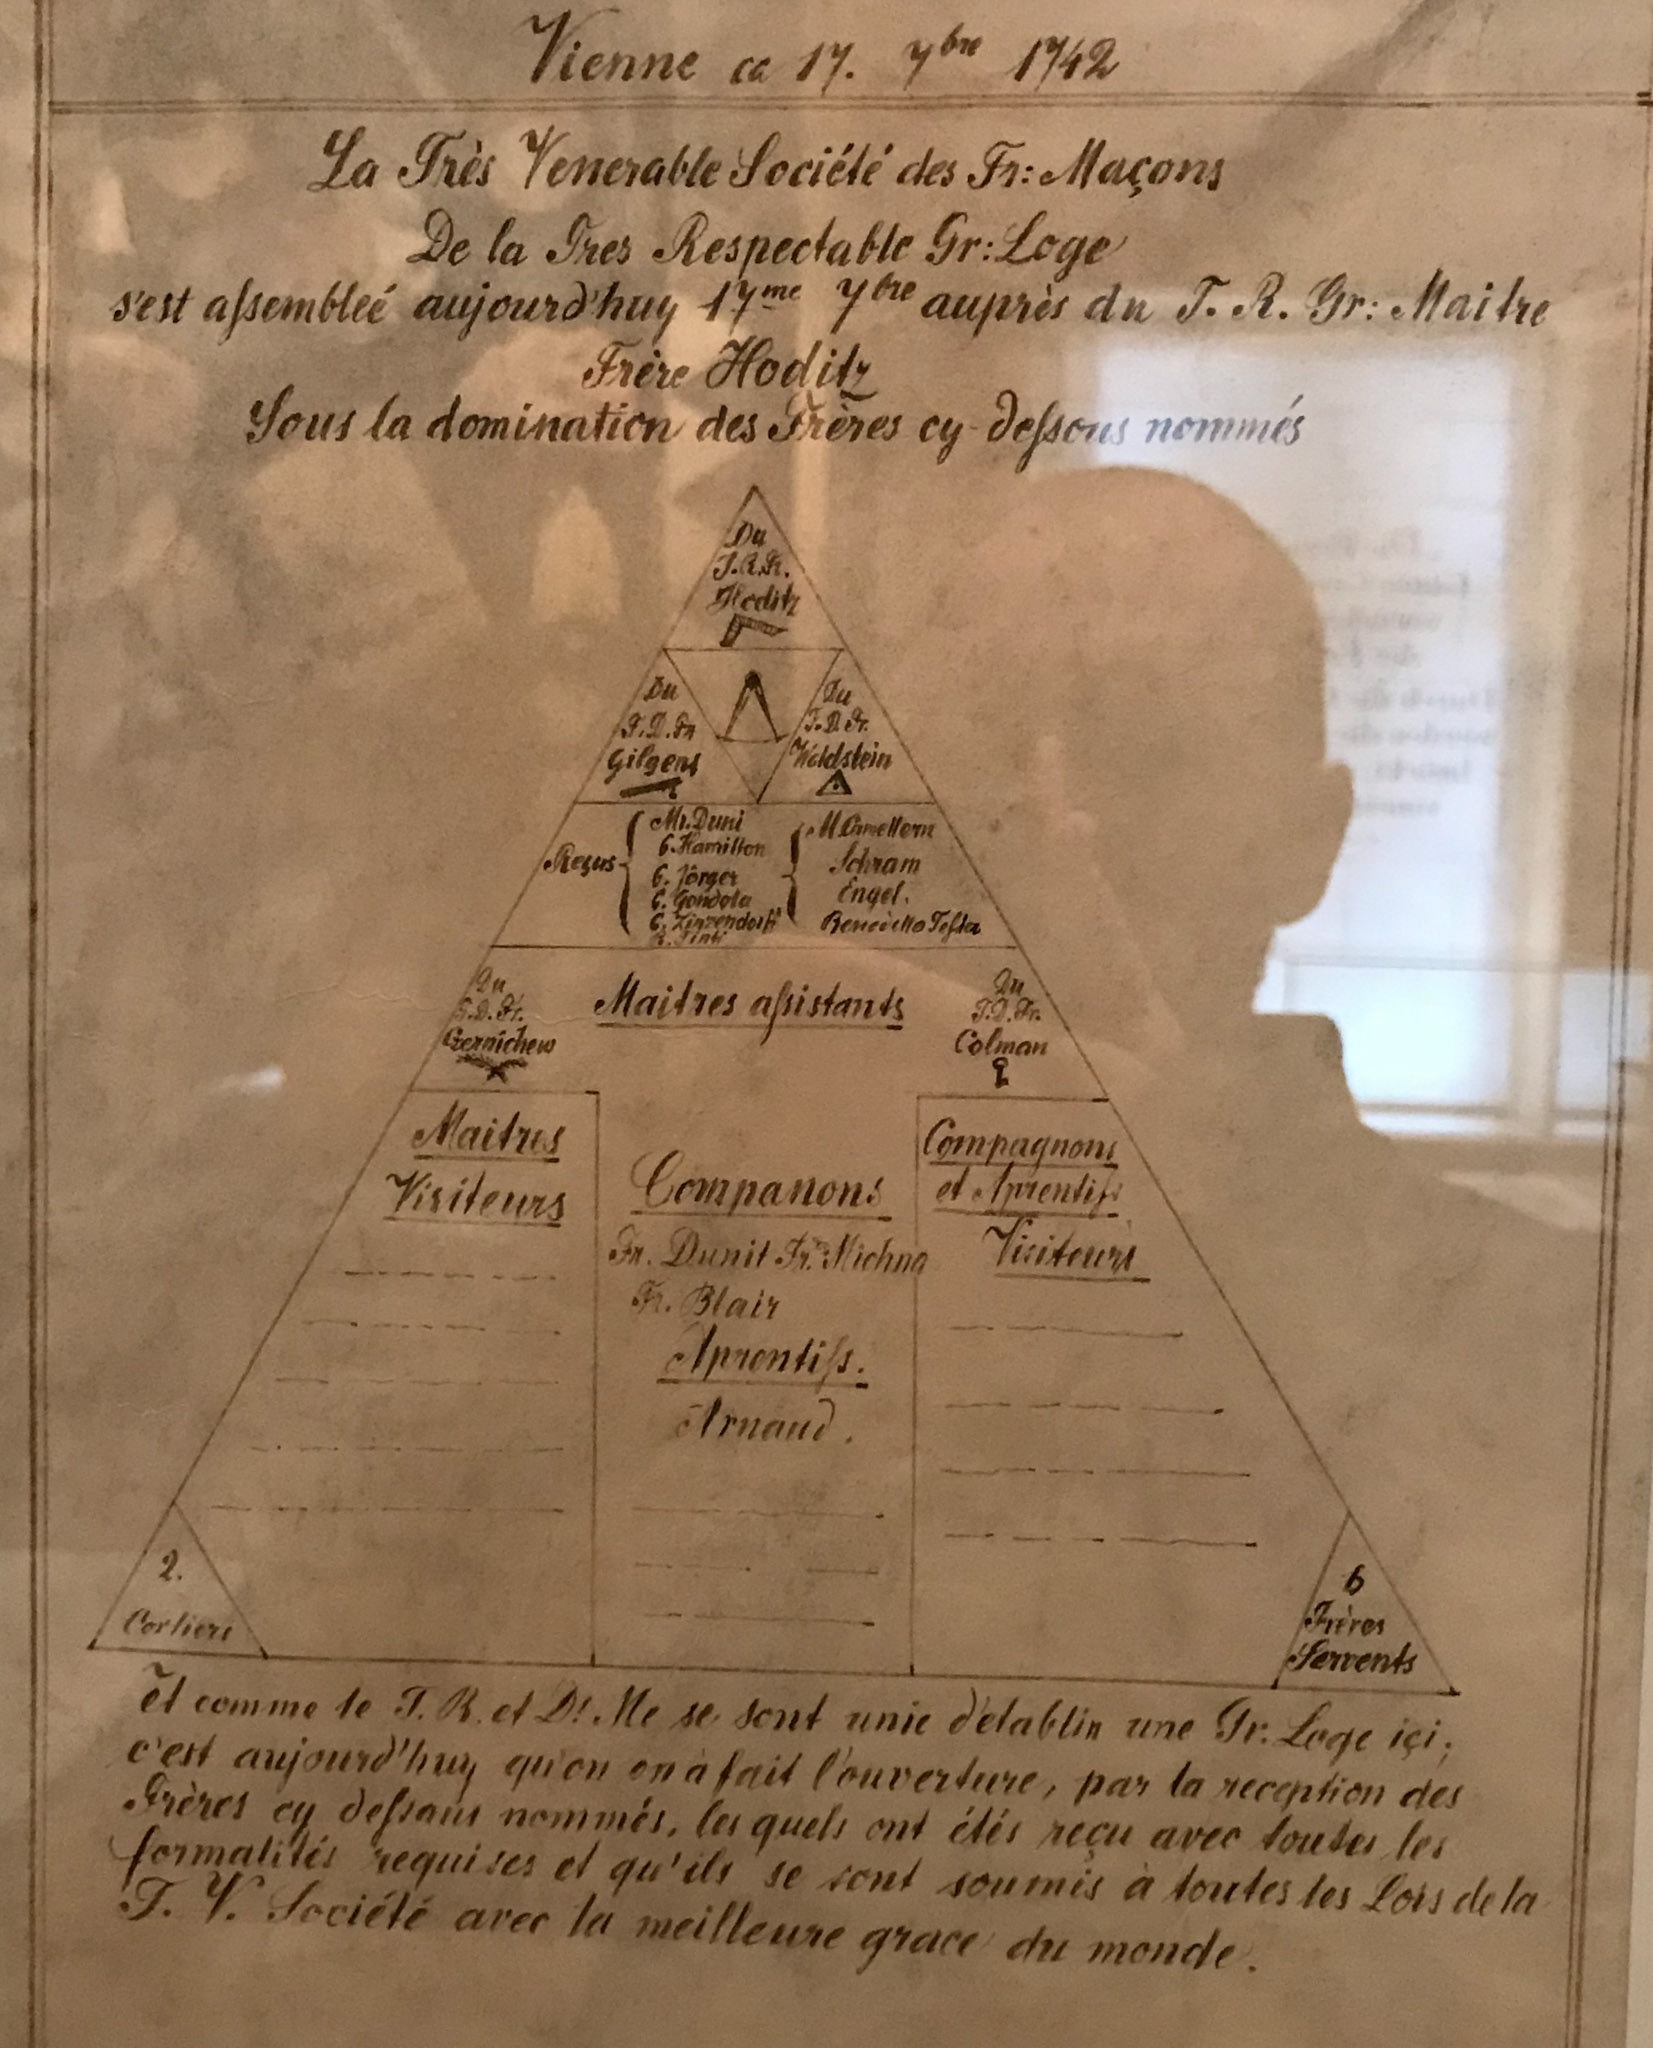 Vienne ca 17. 7bre 1742
La Très Venerable Société des Fr: Maçons
De la Tres Respectable Gr: Loge
s'est aſsembleé aujourd'huy 17me 7bre auprès du T. R. Gr: Maitre
Frère Hoditz
Sous la domination des Frères cy-deſsous nommés
Du
Hoditz
Du Du
T.D.Fr. T.D.Fr.
Gilgens Waldstein
Reçus
Mr. Duni
C. Hamilton
C. Jörger
C. Gondola
C. Zinzendorff
Schram
Engel.
Benedetto Teſsta
Du Du
T.D.Fr. T.D.Fr.
Czernichew Maitres aſsistants Colman
Maitres
Visiteurs
Companons
Fr. Dunit Fr. Michna
Fr. Blair
Aprentiſs.
Arnaud.
Compagnons
et Aprentiſs
Visiteurs
2.
6
Frères
Servents
Et comme le T. R. et D! Me se sont unie d'établin une Gr. Loge içi;
c'est aujourd'huy qu'on en à fait l'ouverture, par la reception des
Frères cy deſsous nommés, les quels ont étés reçu avec toutes les
formalités requises et qu'ils se sont soumis à toutes les Lois de la
T. V. Société avec la meilleure grace du monde.